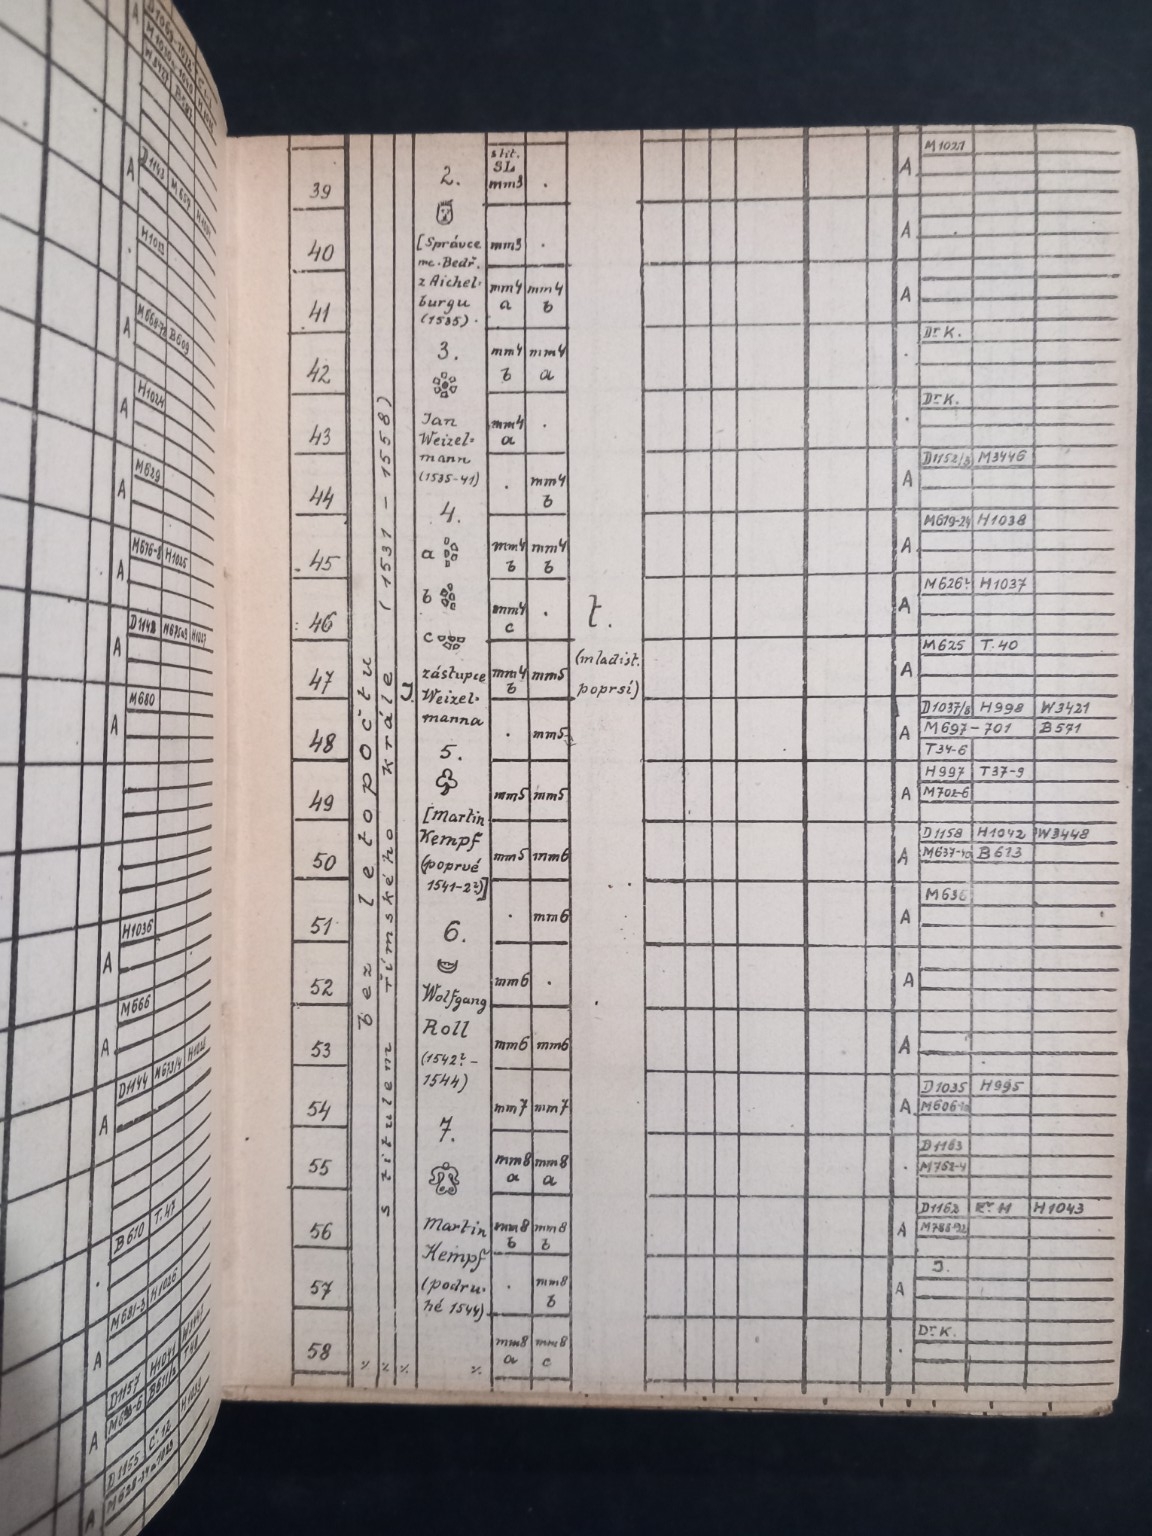 39
40
41
42
43
44
45
46
47
48
49
50
51
52
53
54
55
56
57
58
bez letopočtu
s titulem římského krále (1531 - 1558)
J
2.
[Správce
mc. Bedř.
z Aichel-
burgu
(1535).
3.
Jan
Weizel-
mann
(1535-41)
4.
a
b
c
zástupce
Weizel-
manna
5.
[Martin
Kempf
(poprvé
1541-2?)]
6.
Wolfgang
Roll
(1542?-
1544)
7.
Martin
Kempf
(podru-
hé 1544)
SL
mm3 .
mm3 .
mm4 mm4
a b
mm4 mm4
b a
mm4 .
a
. mm4
b
mm4 mm4
b b
mm4 .
c
mm4 mm5
b
. mm5
mm5 mm5
mm5 mm6
. mm6
mm6 .
mm6 mm6
mm7 mm7
mm8 mm8
a a
mm8 mm8
b b
. mm8
b
mm8 mm8
a c
ł.
(mladist.
poprsí)
A M1027
A
A
. Dr K.
. Dr K.
A D1152/3 M3446
A M619-24 H1038
A M626? H1037
A M625 T.40
A D1037/8 H998 W3421
M697-701 B571
T34-6
A H997 T37-9
M702-6
A D1158 H1042 W3448
M637-40 B613
A M636
A
A
A D1035 H995
M606-10
. D1163
M752-4
A D1162 H1043
A J.
. Dr K.
A
D1143 M659
H1033
M668-72 B609
H1024
M629
M676-8 H1025
D1148
M680
H1036
M666
D1144 M673/4
B610 T.47
M681-3 H1026
D1157 H1041
D1155